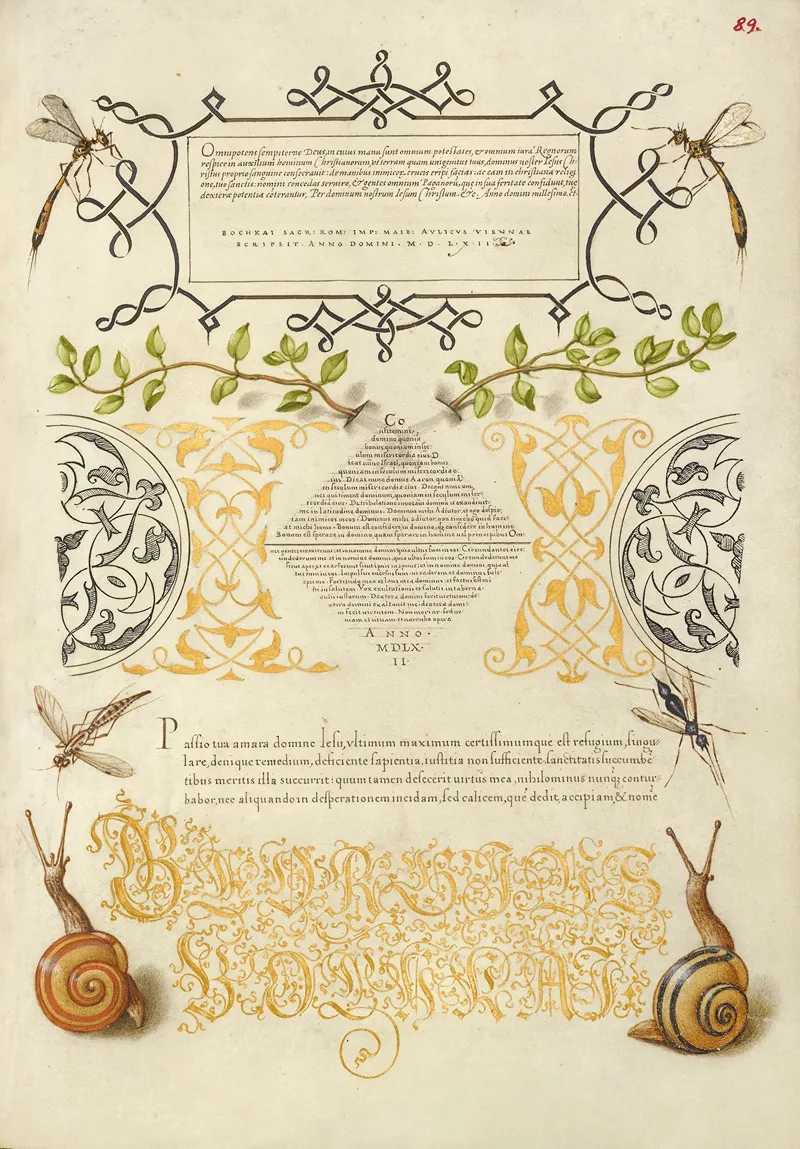 89.
Omnipotens sempiterne Deus, in cuius manu sunt omnium potestates, & omnium iura Regnorum
respice in auxilium hominum Christianorum, ut terram quam unigenitus tuus, dominus noster Iesus Ch-
ristus proprio sanguine consecrauit: de manibus inimicor. crucis eripi facias: ac eam in christiana religi
one, tuo sancto nomini concedas seruire, & gentes omnium Paganorū, que in sua feritate confidunt, tuę
dexterę potentia coterantur, Per dominum nostrum Iesum Christum. &c. Anno domini millesimo, et
BOCHKAI SACR: ROM: IMP: MAIE: AVLICVS VIENNAE
SCRIPSIT. ANNO DOMINI. M. D. L. X. II
Co
nfitemini
domino quonia
bonus, quoniam in sec
ulum misericordia eius. D
icat nunc Israel, quoniam bonus,
quoniam in seculum misericordia e
ius. Dicat nunc domus Aaron, quoniā
in seculum misericordia eius. Dicant nunc om,
nes qui timent dominum, quoniam in seculum miser
icordia eius. De tribulatione inuocaui dominū et exaudiuit
me in latitudine dominus. Dominus mihi adiutor, et ego despic,
iam inimicos meos. Dominus mihi adiutor, non timebo quid faci
at michi homo. Bonum est confidere in domino, q̄ confidere in homine.
Bonum est sperare in domino, quam sperare in homine uel principibus Om-
nes gentes circuierunt
me in tabernac
culis iustorum. Dextera domini fecit uirtutem: de,
xtera domini exaltauit me. dextera domi
ni fecit uirtutem. Non moriar, sed ui
uam et narrabo opera
ANNO.
MDLX.
II.
Passio tua amara domine Iesu, vltimum maximum certissimumque est refugium, singu-
lare, denique remedium, deficiente sapientia, iustitia non sufficiente, sanctitatis succumbe
tibus meritis illa succurrit: quum tamen defecerit uirtus mea, nihilominus nunq; contur-
babor, nec aliquando in desperationem incidam, sed calicem, quē dedit, accipiam, & nomē
GEORGIVS
BOCHKAI